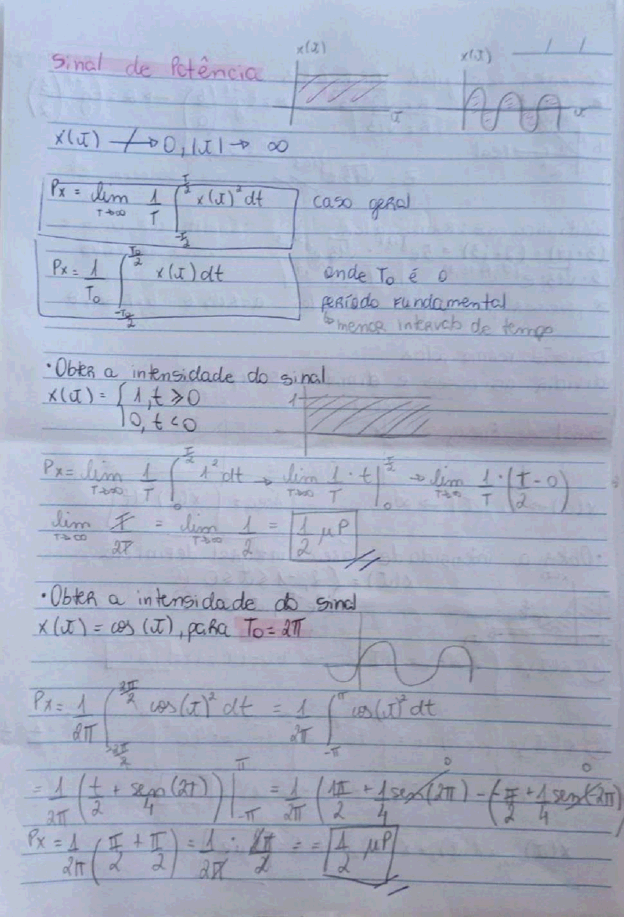 x(t) x(t) / /
Sinal de Potência
t t
x(t) ↛ 0, |t| → ∞
Px = lim T→∞ 1/T ∫_{-T/2}^{T/2} x(t)² dt caso geral
Px = 1/T₀ ∫_{-T₀/2}^{T₀/2} x(t) dt onde T₀ é o
período fundamental
↳ menor intervalo de tempo
• Obter a intensidade do sinal
x(t) = { 1, t ≥ 0 1
0, t < 0
Px = lim T→∞ 1/T ∫_0^{T/2} 1² dt → lim T→∞ 1/T · t |_0^{T/2} → lim T→∞ 1/T · (T/2 - 0)
lim T→∞ T/2T = lim T→∞ 1/2 = 1/2 μP
• Obter a intensidade do sinal
x(t) = cos (t), para T₀ = 2π
Px = 1/2π ∫_{-2π/2}^{2π/2} cos(t)² dt = 1/2π ∫_{-π}^{π} cos(t)² dt
= 1/2π (t/2 + sen(2t)/4) |_{-π}^{π} = 1/2π (1π/2 + 1/4 sen(2π) 0 - (-π/2 + 1/4 sen(-2π) 0
Px = 1/2π (π/2 + π/2) = 1/2π · 2π/2 = = 1/2 μP